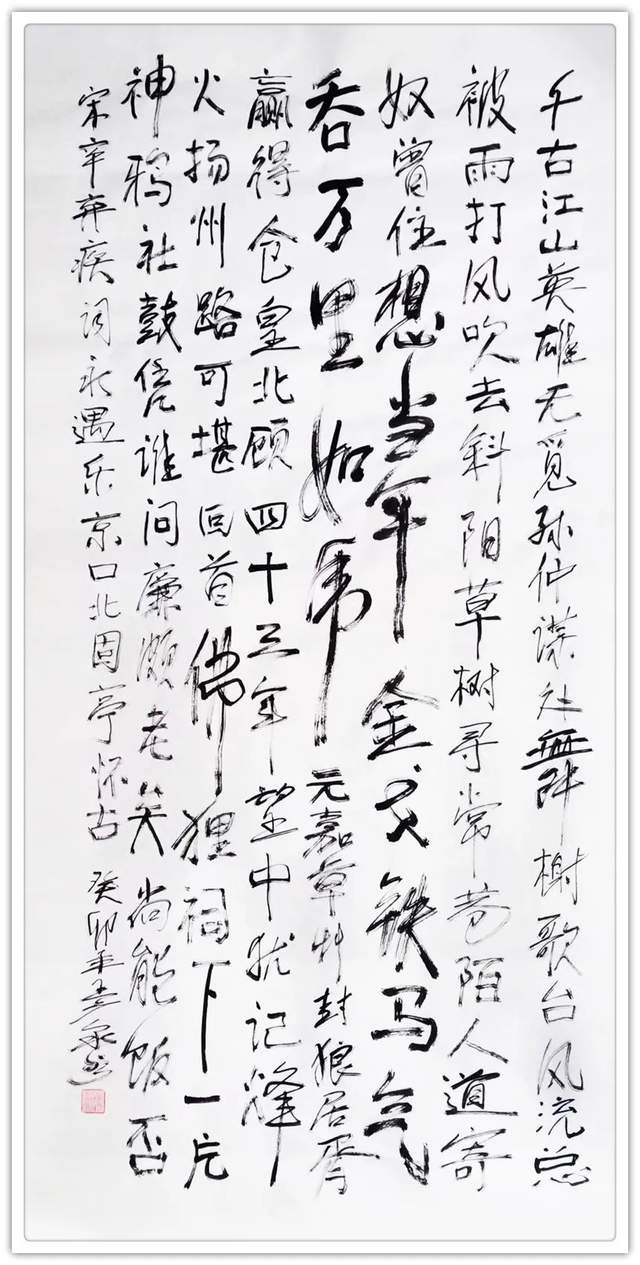 千古江山英雄无觅孙仲谋处舞榭歌台风流总
被雨打风吹去斜阳草树寻常巷陌人道寄
奴曾住想当年金戈铁马气
吞万里如虎元嘉草艸封狼居胥
赢得仓皇北顾四十三年望中犹记烽
火扬州路可堪回首佛狸祠下一片
神鸦社鼓凭谁问廉颇老矣尚能饭否
宋辛弃疾词永遇乐京口北固亭怀古 癸卯年